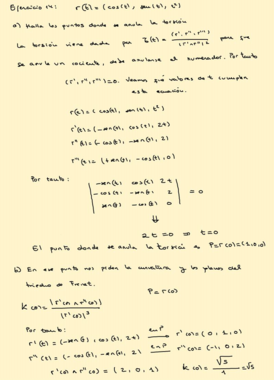 Ejercicio 14: r(t) = (cos(t), sen(t), t²)
a) Halla los puntos donde se anula la torsión
La torsión viene dada por Z(t) = (r', r'', r''') / |r' ∧ r''|² para que
se anule un cociente, debe anularse el numerador. Por tanto
(r', r'', r''') = 0. Veamos qué valores de t cumplen
esta ecuación.
r(t) = (cos(t), sen(t), t²)
r'(t) = (-sen(t), cos(t), 2t)
r''(t) = (-cos(t), -sen(t), 2)
r'''(t) = (+sen(t), -cos(t), 0)
Por tanto:
| -sen(t) cos(t) 2t |
| -cos(t) -sen(t) 2 | = 0
| sen(t) -cos(t) 0 |
⇓
2t = 0 ⇒ t = 0
El punto donde se anula la torsión es P = r(0) = (1,0,0)
b) En ese punto nos piden la curvatura y los planos del
triedro de Frenet.
P = r(0)
K(0) = |r'(0) ∧ r''(0)| / |r'(0)|³
Por tanto:
r'(t) = (-sen(t), cos(t), 2t) en P → r'(0) = (0, 1, 0)
r''(t) = (-cos(t), -sen(t), 2) en P → r''(0) = (-1, 0, 2)
r'(0) ∧ r''(0) = (2, 0, 1) K(0) = √5 / 1 = √5